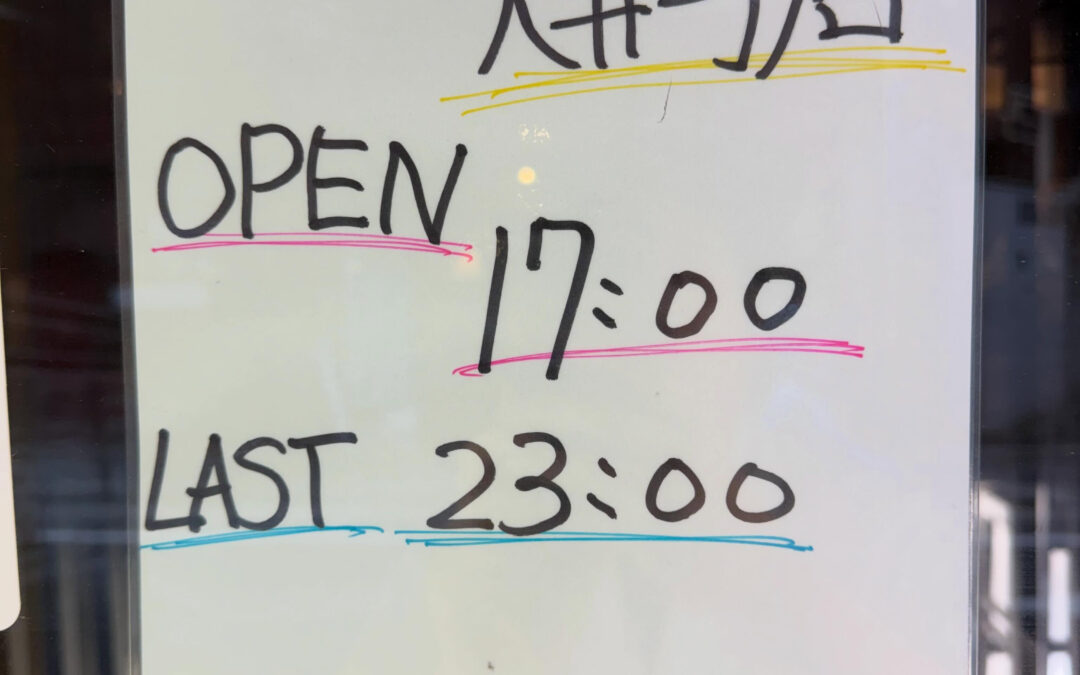 OPEN
17:00
LAST 23:00